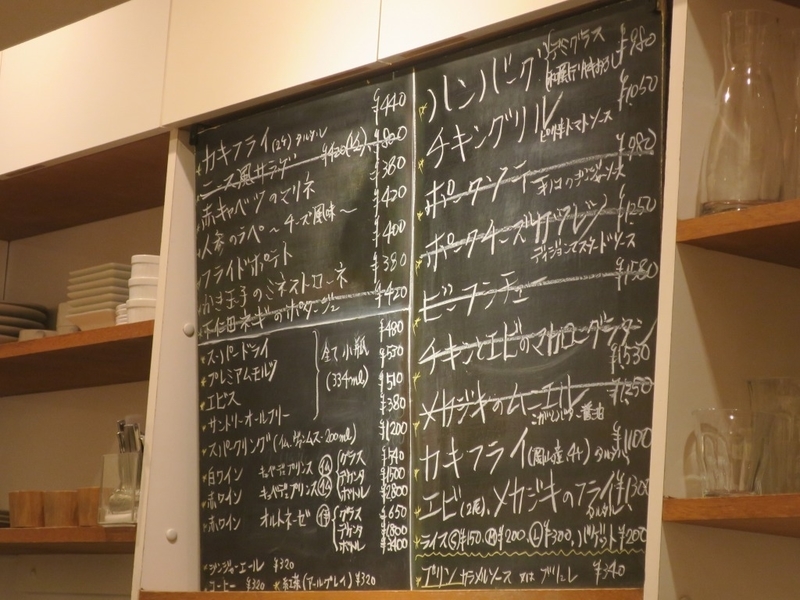 カキフライ(2ケ) タルタル ¥440
ニース風サラダ ¥420(1/2) ¥800
赤キャベツのマリネ ¥380
人参のラペ～チーズ風味～ ¥420
フライドポテト ¥400
かき玉子のミネストローネ ¥380
下仁田ネギのポタージュ ¥420
スーパードライ ¥480
プレミアムモルツ ¥530
エビス ¥510
全て小瓶
(334ml)
サントリーオールフリー ¥380
スパークリング 200ml) ¥1200
白ワイン キュベデュプリンス グラス ¥540
赤ワイン キュベデュプリンス デカンタ ¥1500
ボトル ¥2800
赤ワイン オルトネーゼ グラス ¥650
デカンタ ¥1800
ボトル ¥3400
ジンジャーエール ¥320
コーヒー ¥320 紅茶(アールグレイ) ¥320
ハンバーグ デミグラス ¥980
和風テリヤキおろし
チキングリル ピリ辛トマトソース ¥1050
ポークソテー キノコのジンジャーソース ¥980
ポークチーズ ¥1250
ディジョンマスタードソース
ビーフシチュー ¥1580
チキンとエビのマカロニグラタン ¥1530
メカジキのムニエル ¥1250
こがしバター醤油
カキフライ(岡山産4ケ) タルタル ¥1100
エビ(2尾)、メカジキのフライ ¥1300
タルタル
ライスⓈ¥150、Ⓜ¥200、Ⓛ¥300、バゲット¥200
プリン カラメルソース 又は ブリュレ ¥340